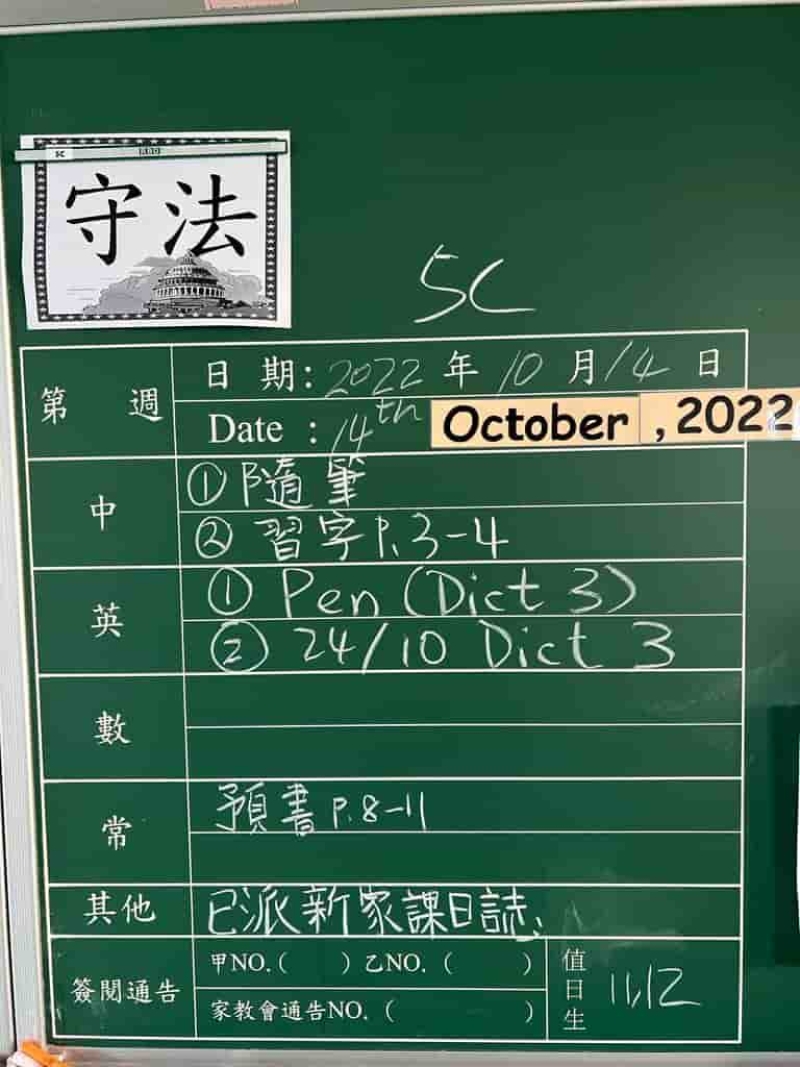 守法
5C
第 週
日 期: 2022 年 10 月 14 日
Date : 14th October , 2022
中
① 隨筆
② 習字 P. 3-4
英
① Pen (Dict 3)
② 24/10 Dict 3
數
常
預書 P. 8-11
其他
已派新家課日誌
簽閱通告
甲NO. ( ) 乙NO. ( )
家教會通告NO. ( )
值日生
11,12